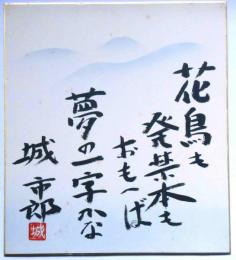 花鳥も
発禁本も
おもへば
夢の一字かな
城 市郎
城